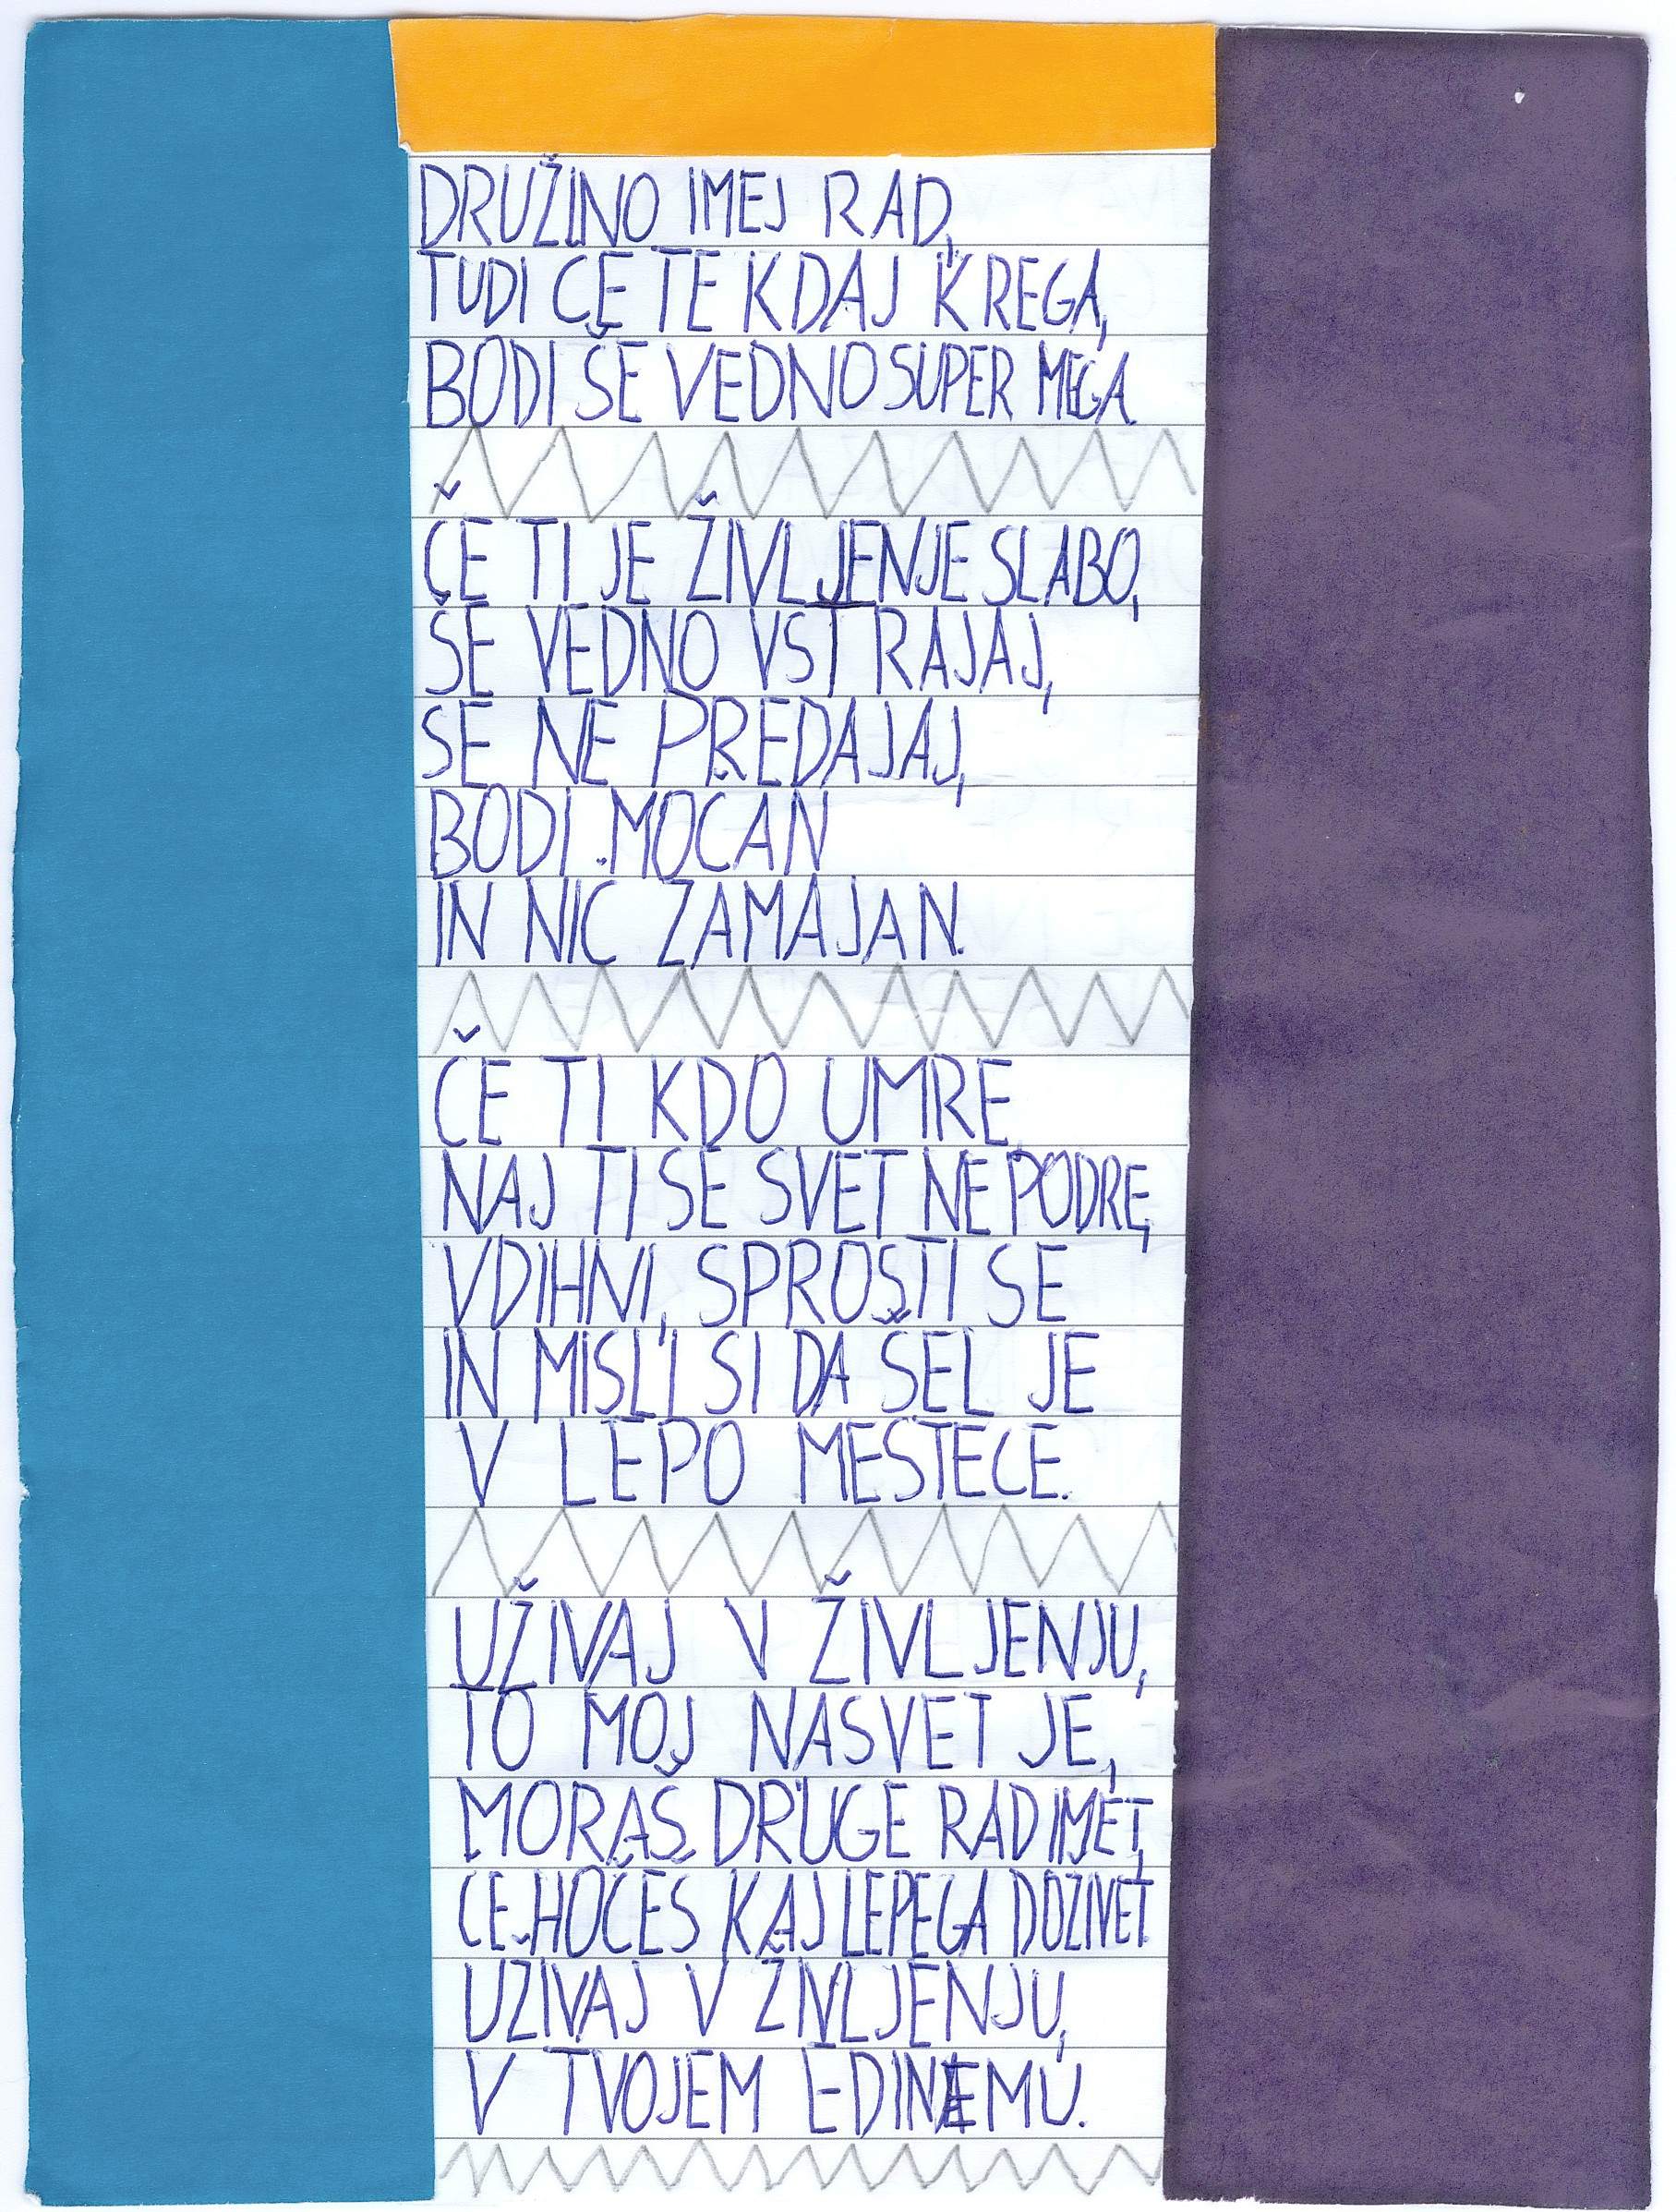 DRUŽINO IMEJ RAD,
TUDI ČE TE KDAJ KREGA,
BODI ŠE VEDNO SUPER MEGA.
ČE TI JE ŽIVLJENJE SLABO,
ŠE VEDNO VSTRAJAJ,
SE NE PREDAJAJ,
BODI MOČAN
IN NIČ ZAMAJAN.
ČE TI KDO UMRE,
NAJ TI SE SVET NE PODRE,
VDIHNI, SPROSTI SE
IN MISLI SI DA ŠEL JE
V LEPO MESTECE.
UŽIVAJ V ŽIVLJENJU,
TO MOJ NASVET JE,
MORAŠ DRUGE RAD IMET,
ČE HOČEŠ KAJ LEPEGA DOŽIVET.
UŽIVAJ V ŽIVLJENJU,
V TVOJEM EDINEMU.